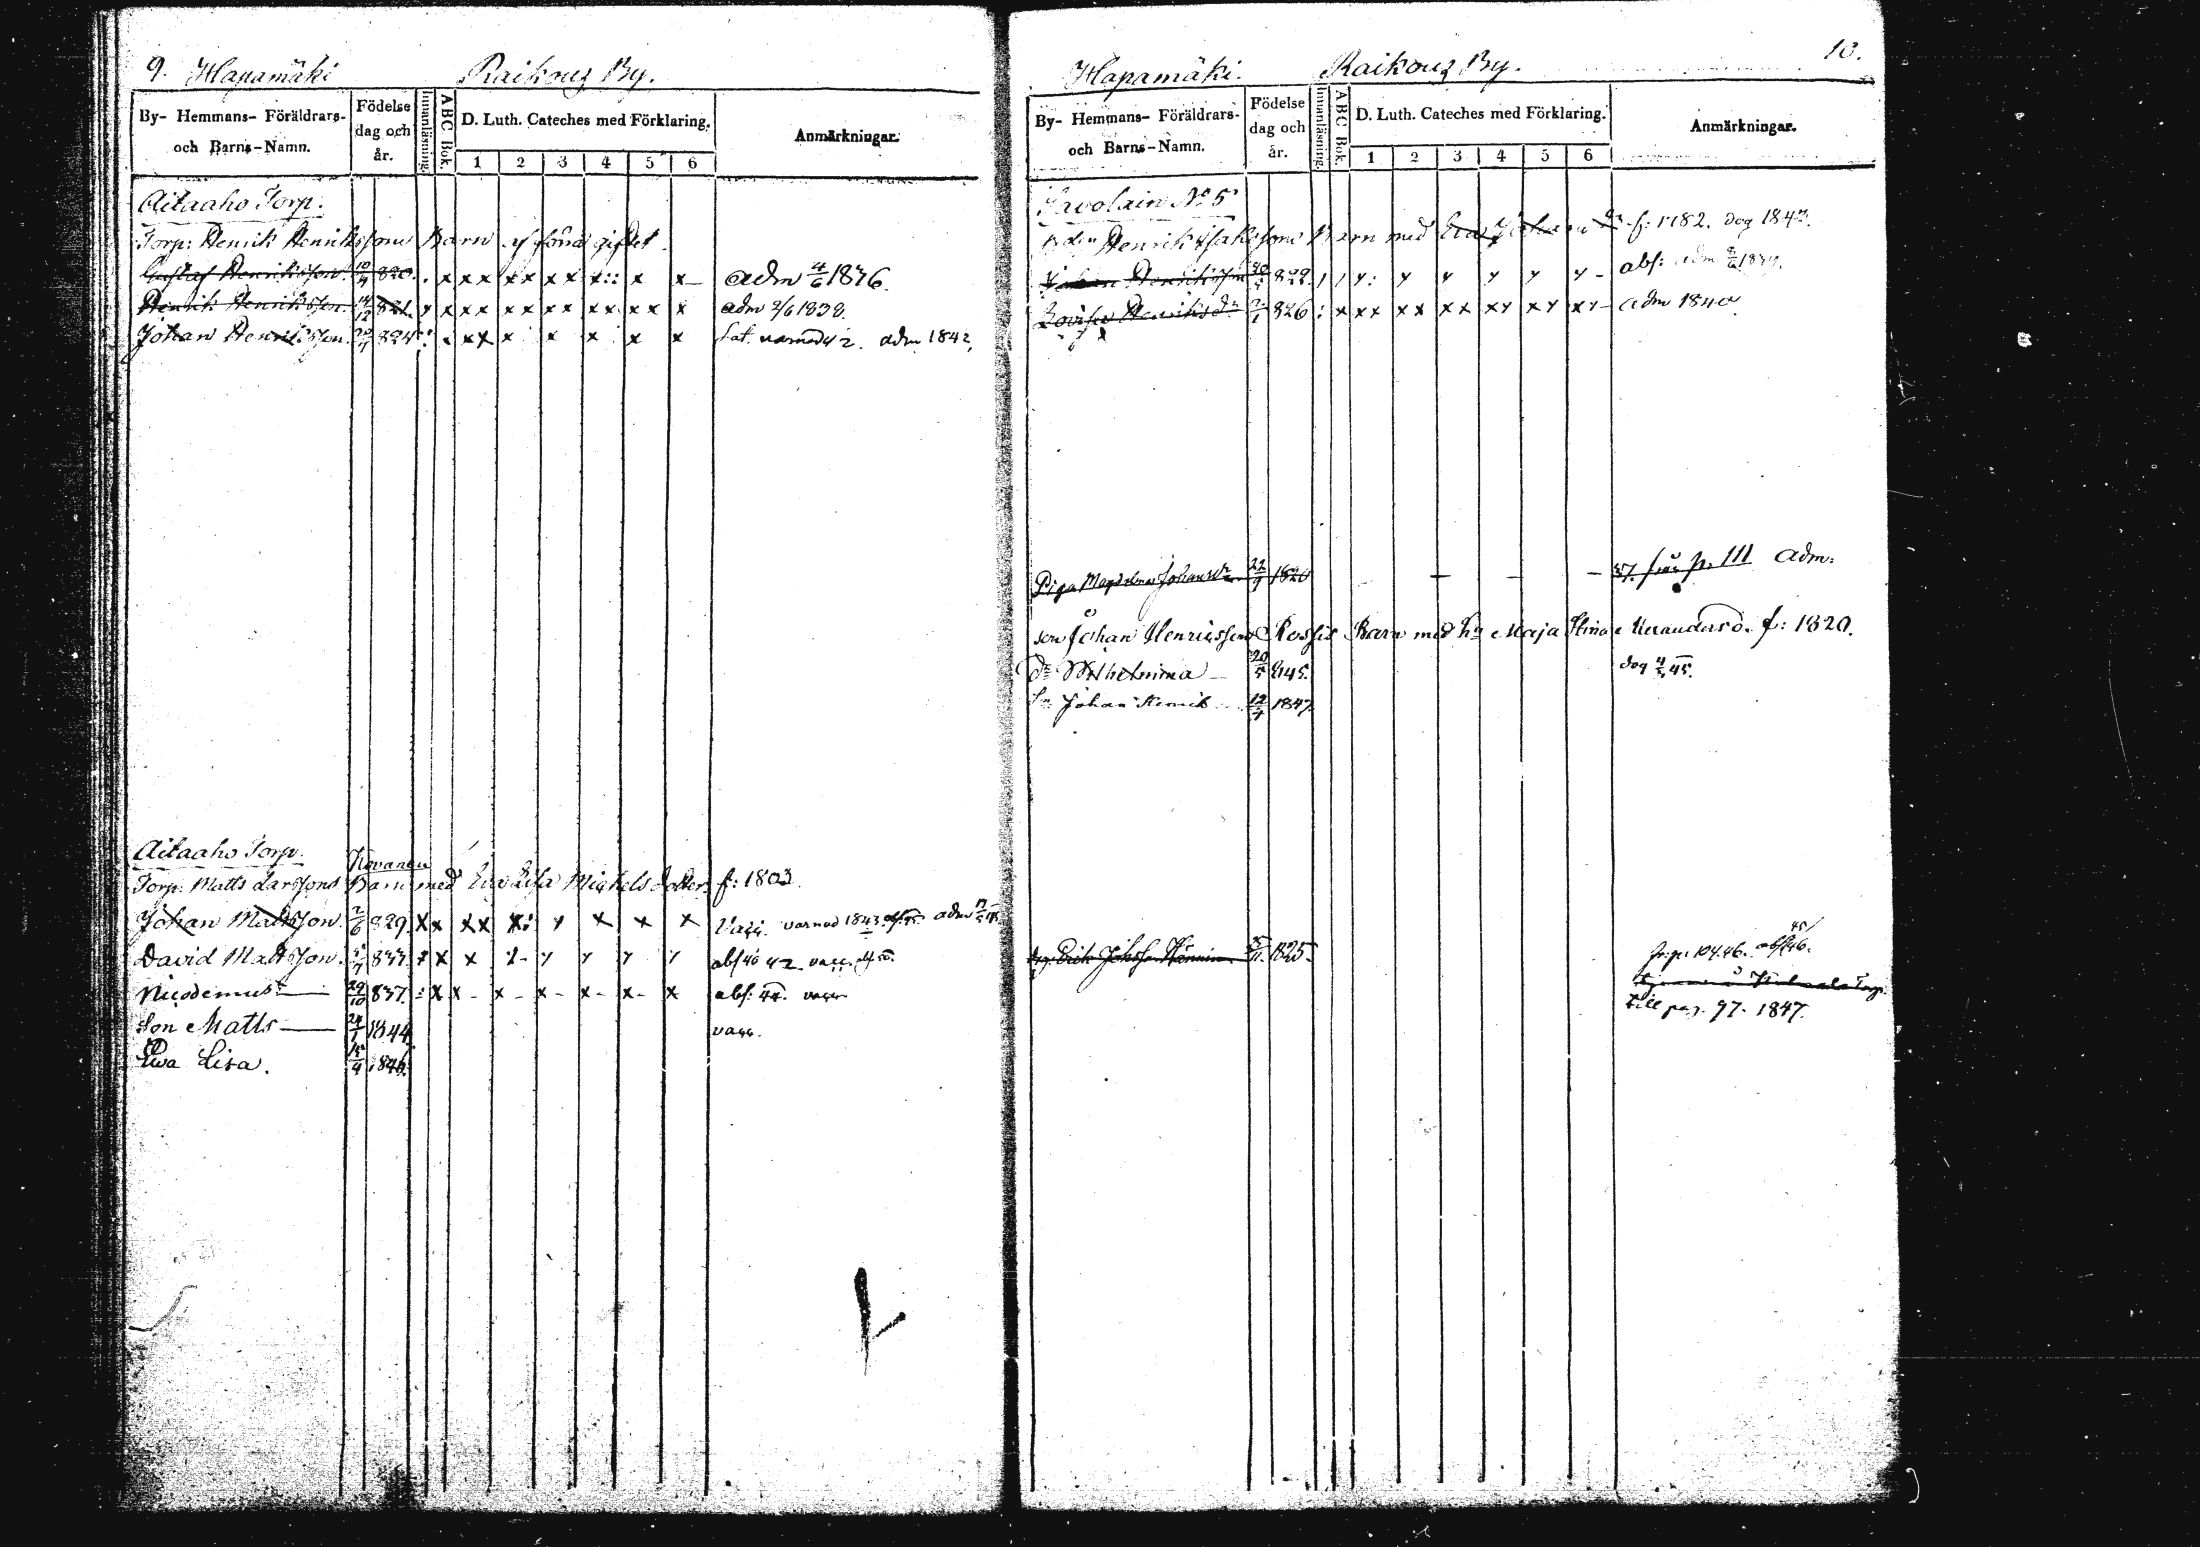 9. Hapamäki Raikouz By.
By- Hemmans- Föräldrars- och Barns-Namn.
Födelse dag och år.
Innanläsning.
ABC Bok.
D. Luth. Cateches med Förklaring.
1 2 3 4 5 6
Anmärkningar.
Aitaaho Torp.
Torp: Henrik Henrikssons Barn af förra giftet
Gustaf Henriksson 10/4 820. . x x x x x x x x :: x x – adm 4/6 1836.
Henrik Henriksson 14/12 821. x x x x x x x x x x x x x adm 2/6 1838.
Johan Henriksson 824 : . x x x x x x x varnad 42. adm 1842.
Aitaaho Torp.
Kovanen
Torp: Matts Larssons Barn med Eva Lisa Michelsdotter f: 1803.
Johan Mattsson. 2/6 829. x x x x x : y x x x Vacc. varnad 1843. adm
David Mattsson. 833. x x x y y y y abs 40 42 vacc.
Nicodemus — 29/10 837. : x x – x – x – x – x – x abs: 44. vacc
Son Matts — 24/1 1844 vacc.
Ewa Lisa. 15/4 1846.
Hapamäki. Raikouz By. 10.
By- Hemmans- Föräldrars- och Barns-Namn.
Födelse dag och år.
Innanläsning.
ABC Bok.
D. Luth. Cateches med Förklaring.
1 2 3 4 5 6
Anmärkningar.
Savolain No 5
Henrik Isakssons Barn med Eva f: 1782. dog 1843.
Johan Henriksson 822. / / y : y y y y y – abs: adm 1839.
Lovisa Henriksdr 2/1 826 : x x x x x x x x y x y x y – adm 1840.
Piga Magdalena Johansdr 22/9 1820 – – – 37. från p. 111 adm:
son Johan Henrikssons Barn med hu Maja Stina f: 1820.
dr Wilhelmina – 20/5 1845. dog 45.
Sn Johan Henrik 12/4 1847.
Drg. Erik 1825. fr. p. 104.46. abs 45/46.
till pag. 97. 1847.